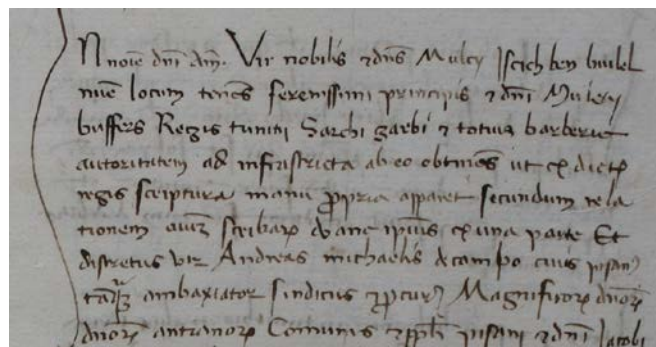 N noiē dnī Am̄. Vir nobilis ⁊ dn̄s Muley Isciech ben huilel
nūc locum tenēs serenissimi principis ⁊ dn̄i Muleii
buffers Regis tunitii Sarchi garbi ⁊ totius barberie
autoritatem ad infrascripta ab eo obtinēs ut ex dictꝝ
regis scriptura manu ꝓpria apparet secundum rela
tionem scribaꝝ doane ipīus ex una parte Et
discretus vir Andreas michaelis de campo civis pisan⁹
tāꝙ ambaxiator sindicus ⁊ ꝓcur Magnificoꝝ dn̄oꝝ
dn̄oꝝ antianoꝝ Comunis ⁊ ppl̄i pisani ⁊ dn̄i Iacobi